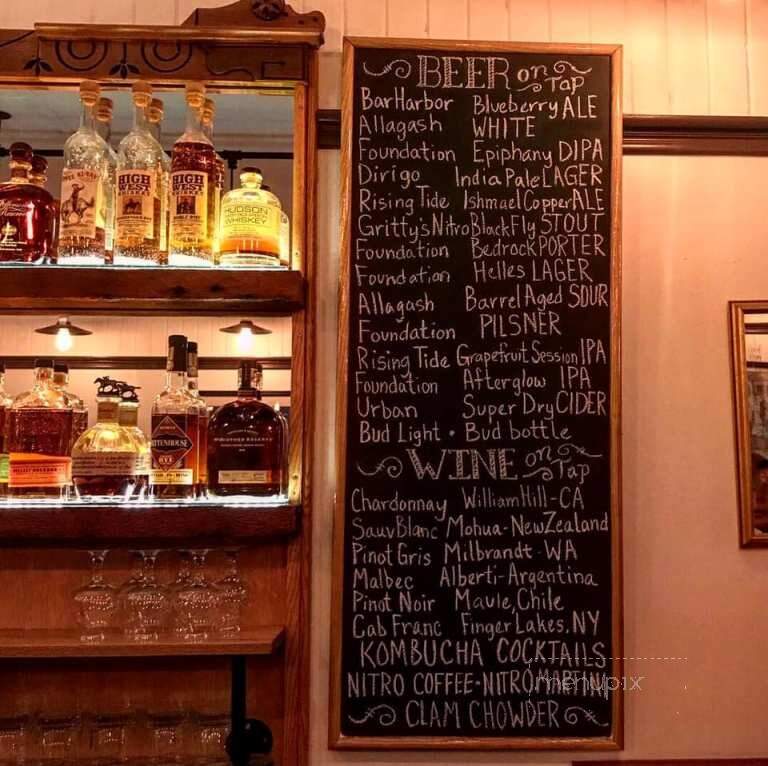 BEER on Tap
BarHarbor Blueberry ALE
Allagash WHITE
Foundation Epiphany DIPA
Dirigo India Pale LAGER
Rising Tide Ishmael Copper ALE
Gritty's Nitro Black Fly STOUT
Foundation Bedrock PORTER
Foundation Helles LAGER
Allagash Barrel Aged SOUR
Foundation PILSNER
Rising Tide Grapefruit Session IPA
Foundation Afterglow IPA
Urban Super Dry CIDER
Bud Light • Bud bottle
WINE on Tap
Chardonnay William Hill-CA
Sauv Blanc Mohua-New Zealand
Pinot Gris Milbrandt-WA
Malbec Alberti-Argentina
Pinot Noir Maule, Chile
Cab Franc Finger Lakes, NY
KOMBUCHA COCKTAILS
NITRO COFFEE • NITRO MARTINI
menupix
CLAM CHOWDER
HIGH WEST
WHISKEY
HIGH WEST
WHISKEY
HUDSON
WHISKEY
RITTENHOUSE
RYE
WOODFORD RESERVE